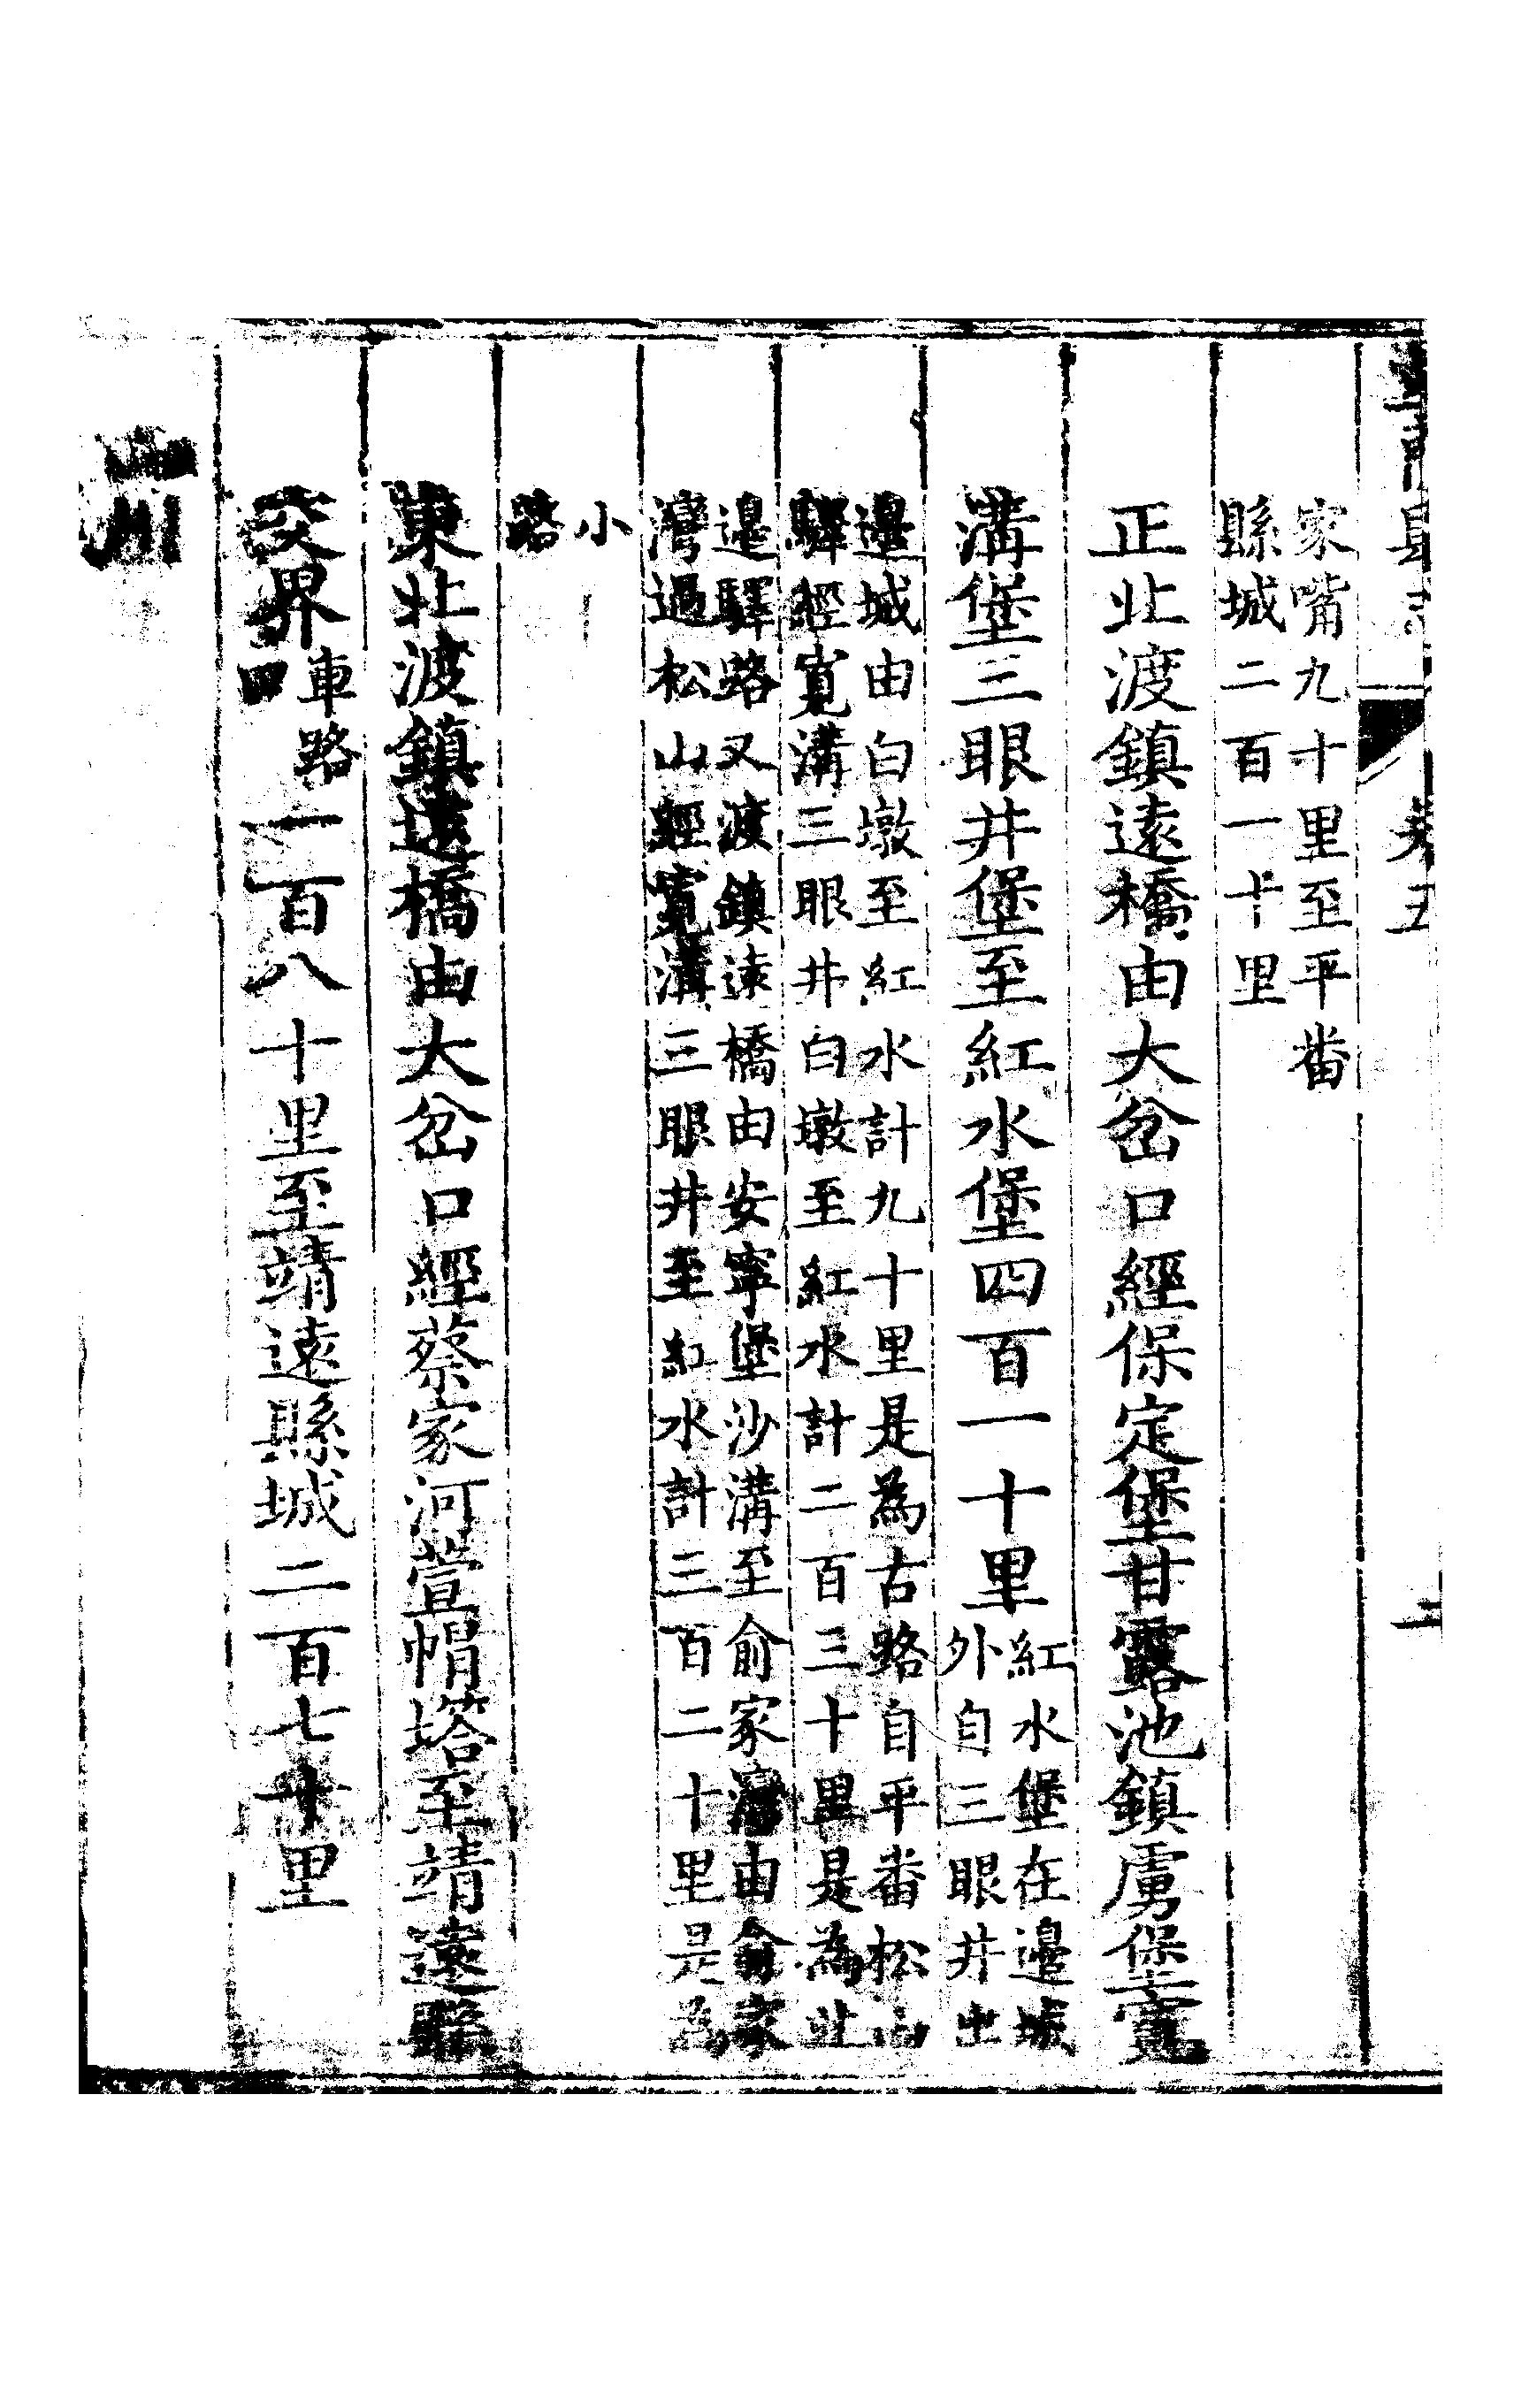 家嘴九十里至平番
縣城二百一十里
正北渡鎮遠橋由大岔口經保定堡甘露池鎮虜堡寬
溝堡三眼井堡至紅水堡四百一十里
紅水堡在邊城
外自三眼井出
邊城由白墩至紅水計九十里是為古路自平番松山
驛經寬溝三眼井白墩至紅水計二百三十里是為北
邊驛路又渡鎮遠橋由安寧堡沙溝至俞家灣由俞家
灣過松山經寬溝三眼井至紅水計三百二十里是為
小
路
東北渡鎮遠橋由大岔口經蔡家河萱帽塔至靖遠縣
交界
車路
口
一百八十里至靖遠縣城二百七十里
山川